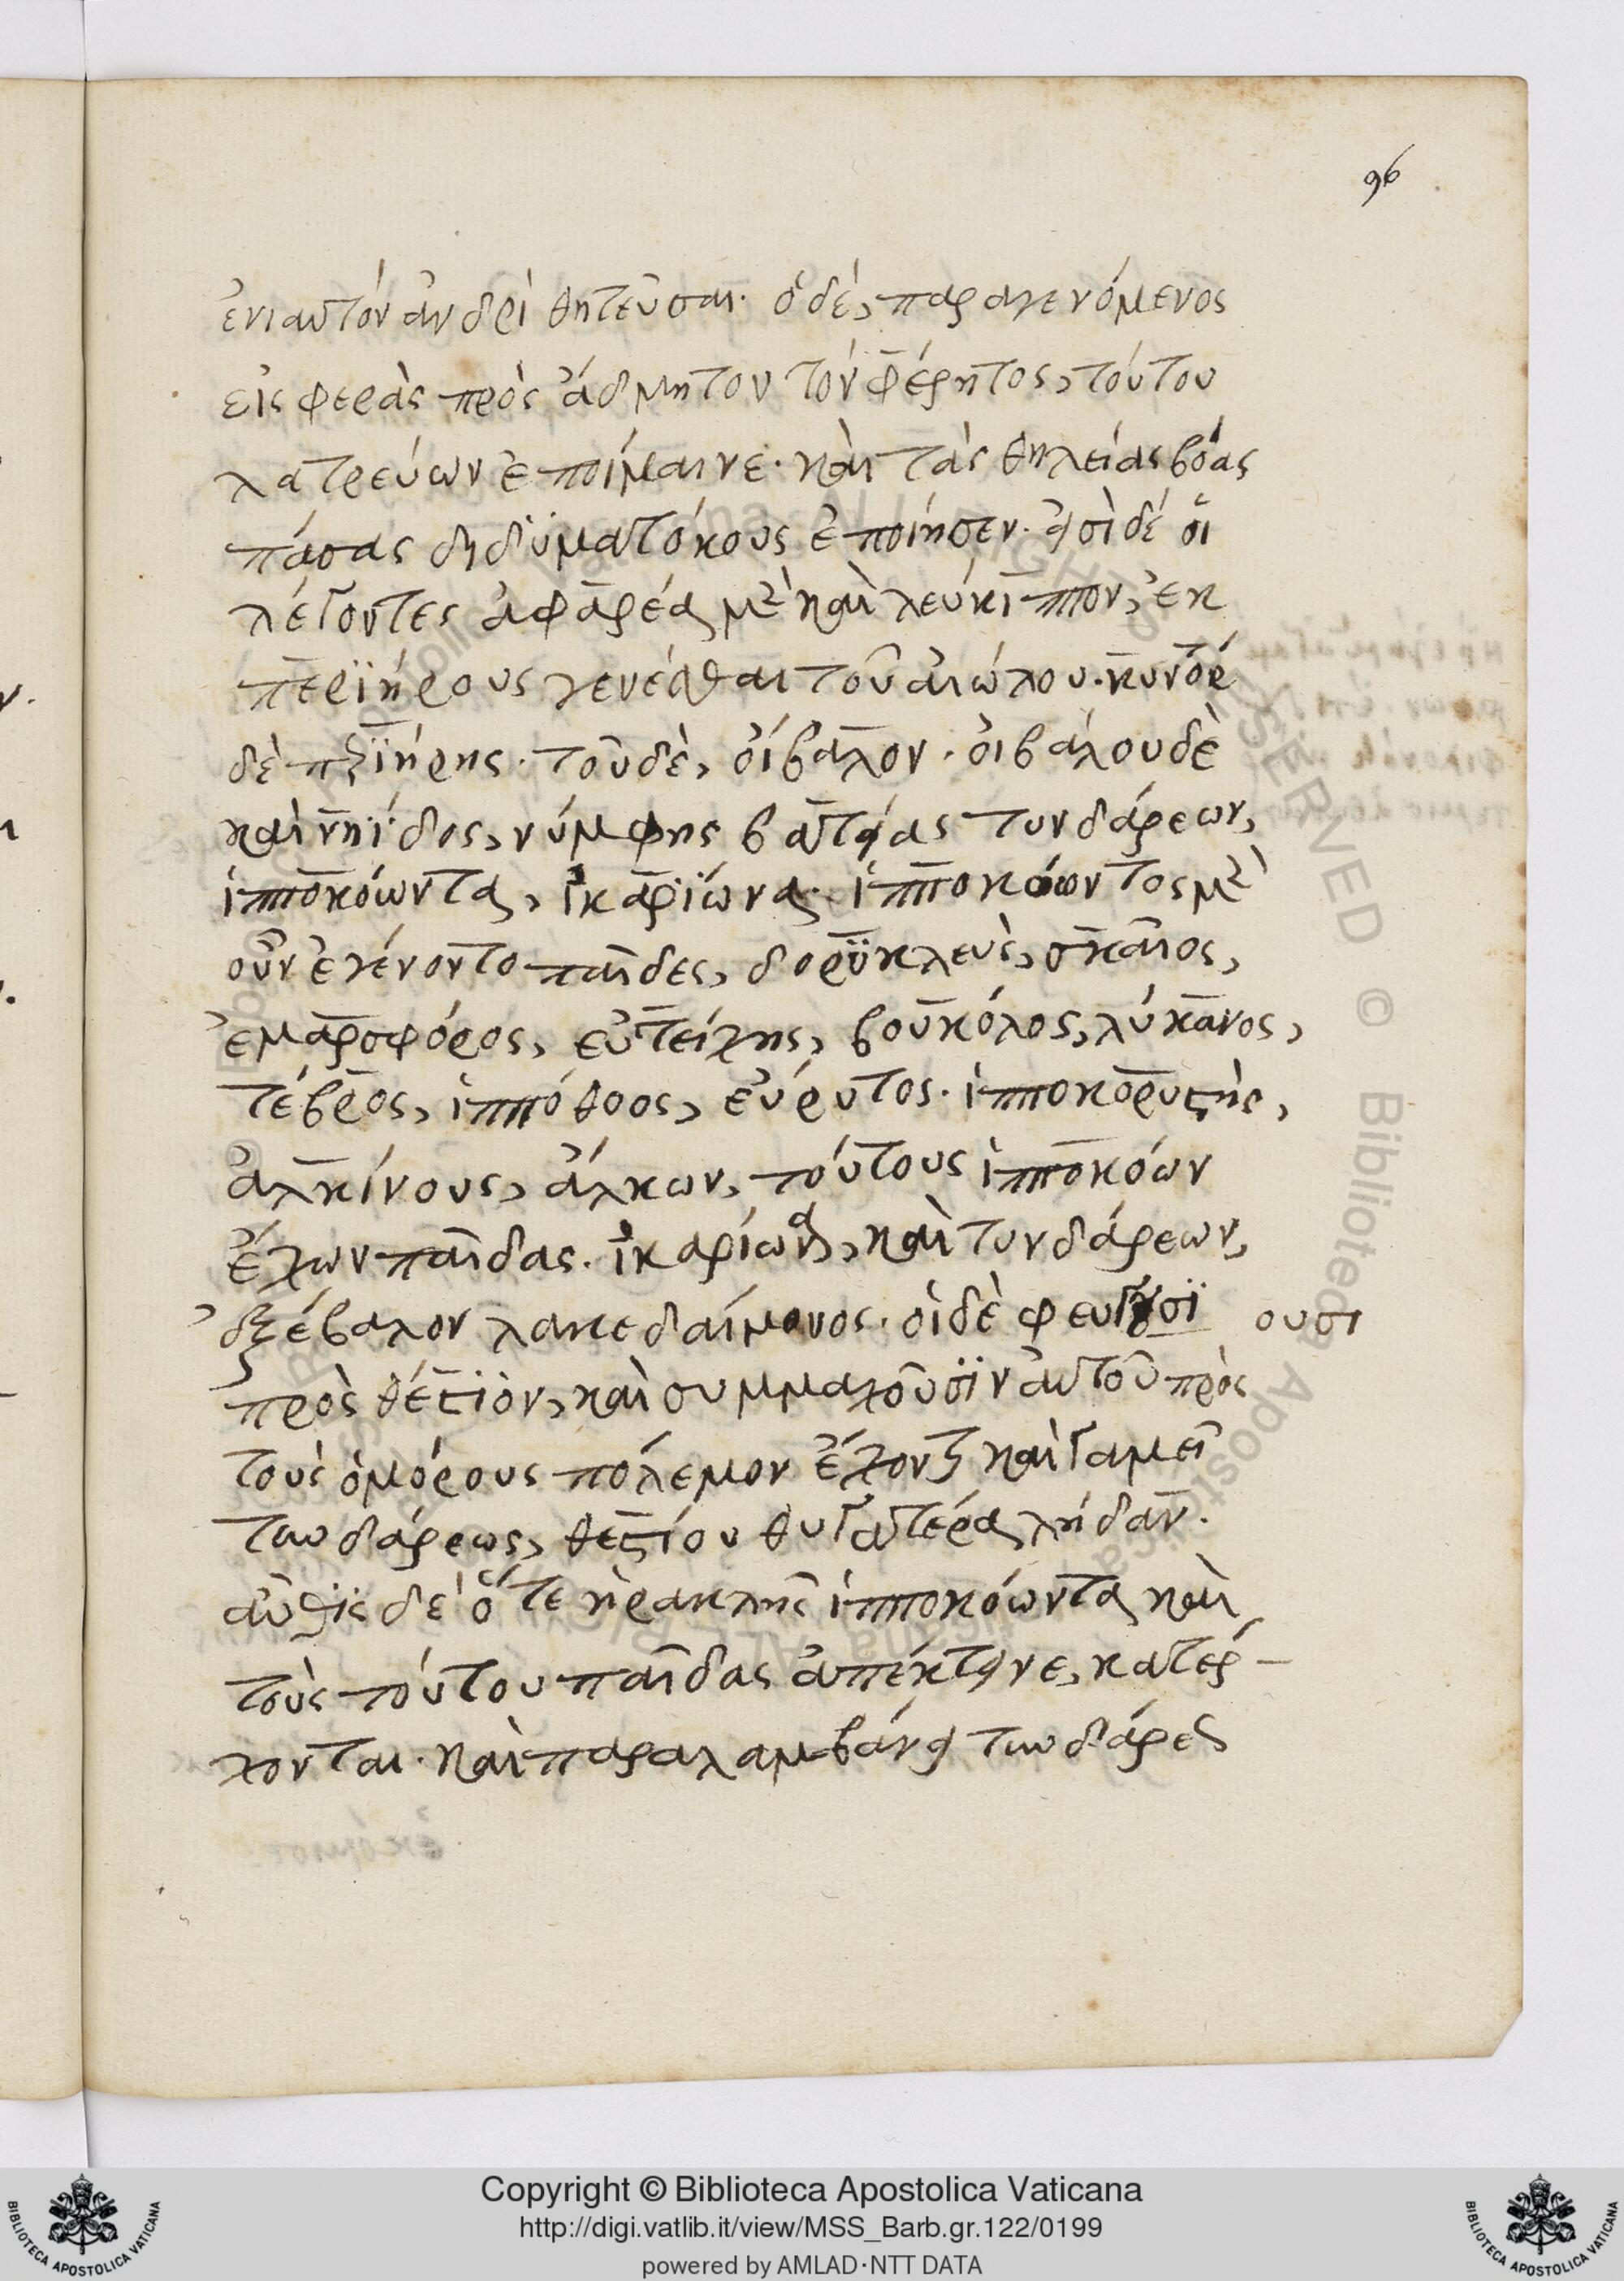 96
ἐνιαυτὸν ἀνδρὶ θητεῦσαι· ὁ δὲ, παραγενόμενος
εἰς φερὰς πρὸς ἄδμητον τὸν φέρητος, τούτου
λατρεύων ἐποίμαινε· καὶ τὰς θηλείας βόας
πάσας διδϋματόκους ἐποίησεν· εἰσὶ δέ οἱ
λέγοντες ἀφαρέα μὲν καὶ λεύκιππον, ἐκ
περϊήρους γενέσθαι τοῦ αἰώλου· κυνόρ
δὲ περϊήρης· τοῦ δὲ, οἴβαλον· οἰβάλου δὲ
καὶ νηΐδος, νύμφης βατείας τυνδάρεων,
ἱπποκόωντα, ἰκαρϊώνα· ἱπποκόωντος μὲν
οὖν ἐγένοντο παῖδες, δορϋκλεὺς, σκαῖος,
ἐμαρσφόρος, εὐτείχης, βουκόλος, λύκανος,
τέβρος, ἱππόθοος, εὔρυτος· ἱπποκορυστὴς,
ἀλκίνους, ἄλκων, τούτους ἱπποκόων
ἔχων παῖδας. ἰκαρίωνα, καὶ τυνδάρεων,
ἐξέβαλον λακεδαίμονος· οἱ δὲ φευγουσϊ ουσι
πρὸς θέστϊον, καὶ συμμαχοῦσϊν αὐτοῦ πρὸς
τοὺς ὁμόρους πόλεμον ἔχοντι καὶ γαμεῖ
τυνδάρεως, θεστίου θυγατέρα λήδαν.
αὖθϊς δὲ ὅτε ἡρακλῆς ἱπποκόωντα καὶ
τοὺς τούτου παῖδας ἀπέκτεινε, κατέρ-
χονται· καὶ παραλαμβάνει τυνδάρεως
Copyright © Biblioteca Apostolica Vaticana
http://digi.vatlib.it/view/MSS_Barb.gr.122/0199
powered by AMLAD·NTT DATA
BIBLIOTECA APOSTOLICA VATICANA
BIBLIOTECA APOSTOLICA VATICANA